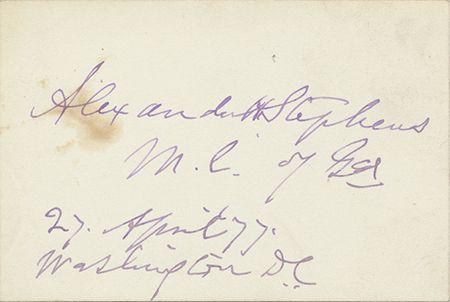 Alexander H Stephens
M. C. of Ga
27. April 77.
Washington D.C.